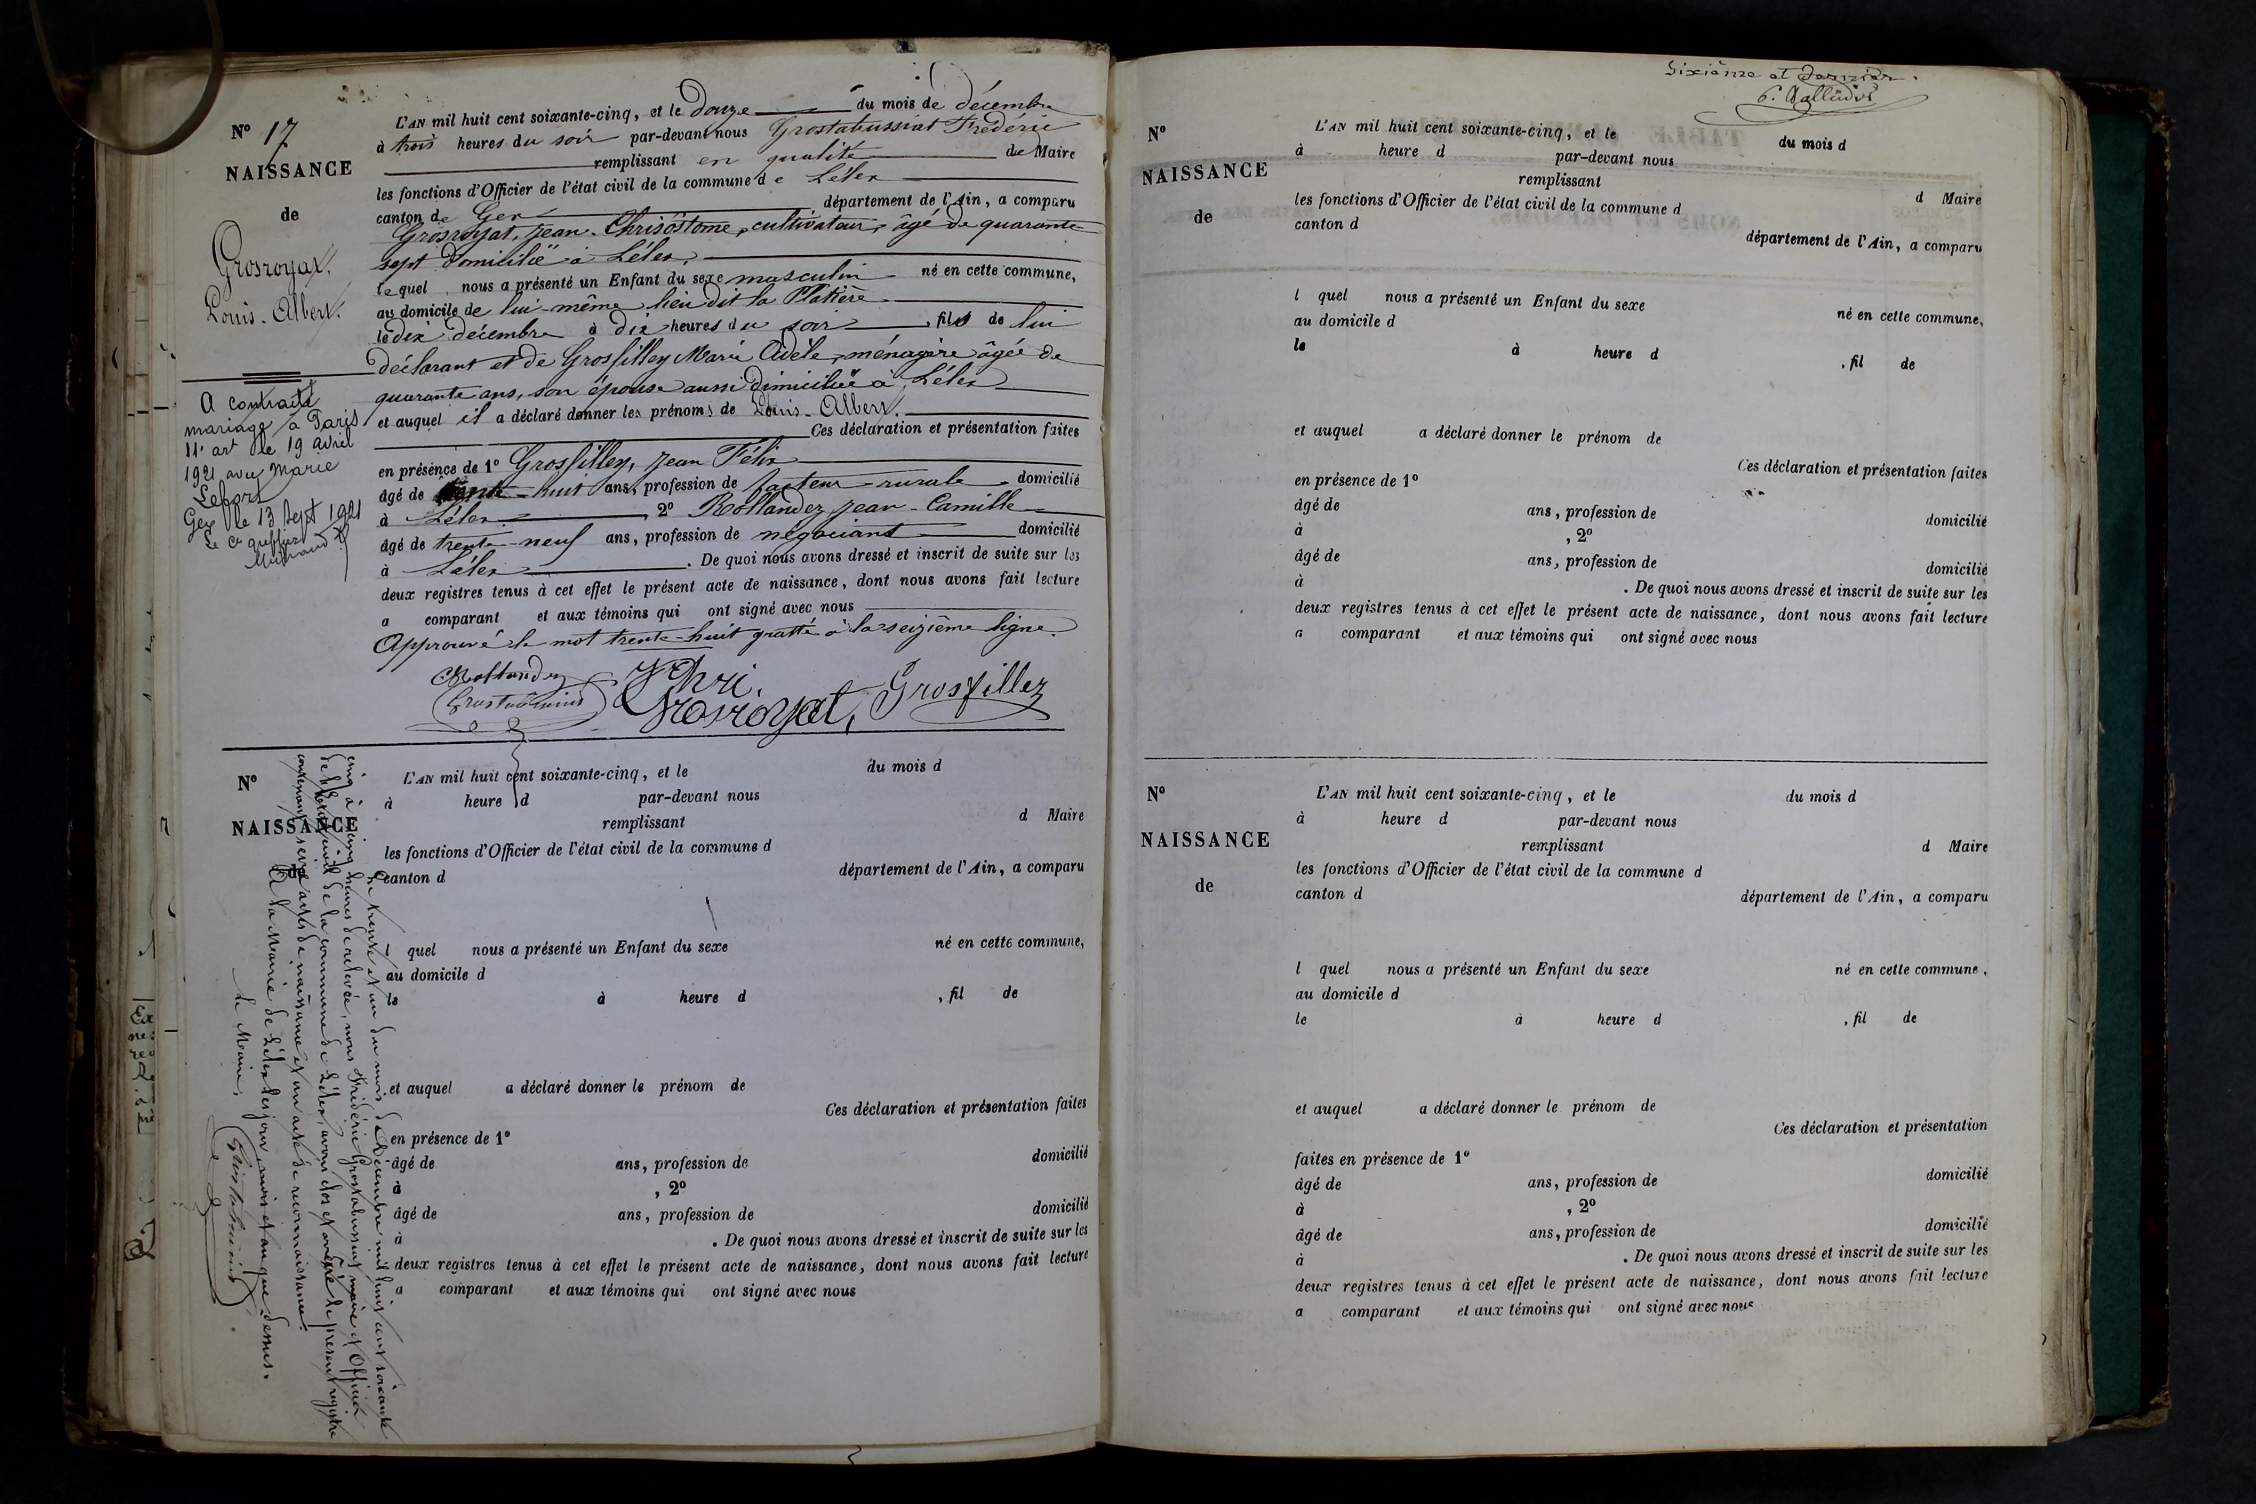 N° 17
NAISSANCE
de
Grosroyat,
Louis-Albert.
A contracté
mariage à Paris
11e art le 19 avril
1921 avec Marie
Lefort
Gex le 13 Sept 1921
Le Cis greffier
L'AN mil huit cent soixante-cinq, et le douze du mois de décembre
à trois heures du soir par-devant nous Grostabussiat Frédéric
remplissant en qualité de Maire
les fonctions d'Officier de l'état civil de la commune de Lélex
canton de Gex département de l'Ain, a comparu
Grosroyat, Jean-Chrisôstome, cultivateur, âgé de quarante-
sept domicilié à Lélex,
lequel nous a présenté un Enfant du sexe masculin né en cette commune,
au domicile de lui-même lieu dit la Platière
le dix décembre à dix heures du soir, fils de lui
déclarant et de Grosfilley Marie Adèle, ménagère âgée de
quarante ans, son épouse aussi dimiciliée à Lélex
et auquel il a déclaré donner les prénoms de Louis-Albert.
Ces déclaration et présentation faites
en présence de 1° Grosfilley, Jean Félix
âgé de trente-huit ans, profession de facteur rurale domicilié
à Lélex, 2° Rollandez Jean-Camille
âgé de trente-neuf ans, profession de négociant domicilié
à Lélex. De quoi nous avons dressé et inscrit de suite sur les
deux registres tenus à cet effet le présent acte de naissance, dont nous avons fait lecture
a comparant et aux témoins qui ont signé avec nous
Approuvé le mot trente-huit gratté à la seizième ligne.
Rollandez J Chri. Grosfillez
Grostabussiat Grosroyat,
N°
NAISSANCE
de
L'AN mil huit cent soixante-cinq, et le du mois d
à heure d par-devant nous
remplissant d Maire
les fonctions d'Officier de l'état civil de la commune d
canton d département de l'Ain, a comparu
l quel nous a présenté un Enfant du sexe né en cette commune,
au domicile d
le à heure d , fil de
et auquel a déclaré donner le prénom de
Ces déclaration et présentation faites
en présence de 1°
âgé de ans, profession de domicilié
à , 2°
âgé de ans, profession de domicilié
à . De quoi nous avons dressé et inscrit de suite sur les
deux registres tenus à cet effet le présent acte de naissance, dont nous avons fait lecture
a comparant et aux témoins qui ont signé avec nous
Ce trente et un du mois de Décembre mil huit cent soixante
cinq à cinq heures de relevée, nous Frédéric Grostabussiat maire et Officier
de l'Etat civil de la commune de Lélex, avons clos et arrêté le présent registre
contenant seize actes de naissance et un acte de reconnaissance.
A la Mairie de Lélex les jour, mois et an que dessus.
Le Maire,
Grostabussiat
Sixième et dernier.
N°
NAISSANCE
de
L'AN mil huit cent soixante-cinq, et le du mois d
à heure d par-devant nous
remplissant d Maire
les fonctions d'Officier de l'état civil de la commune d
canton d département de l'Ain, a comparu
l quel nous a présenté un Enfant du sexe né en cette commune,
au domicile d
le à heure d , fil de
et auquel a déclaré donner le prénom de
Ces déclaration et présentation faites
en présence de 1°
âgé de ans, profession de domicilié
à , 2°
âgé de ans, profession de domicilié
à . De quoi nous avons dressé et inscrit de suite sur les
deux registres tenus à cet effet le présent acte de naissance, dont nous avons fait lecture
a comparant et aux témoins qui ont signé avec nous
N°
NAISSANCE
de
L'AN mil huit cent soixante-cinq, et le du mois d
à heure d par-devant nous
remplissant d Maire
les fonctions d'Officier de l'état civil de la commune d
canton d département de l'Ain, a comparu
l quel nous a présenté un Enfant du sexe né en cette commune,
au domicile d
le à heure d , fil de
et auquel a déclaré donner le prénom de
Ces déclaration et présentation
faites en présence de 1°
âgé de ans, profession de domicilié
à , 2°
âgé de ans, profession de domicilié
à . De quoi nous avons dressé et inscrit de suite sur les
deux registres tenus à cet effet le présent acte de naissance, dont nous avons fait lecture
a comparant et aux témoins qui ont signé avec nous